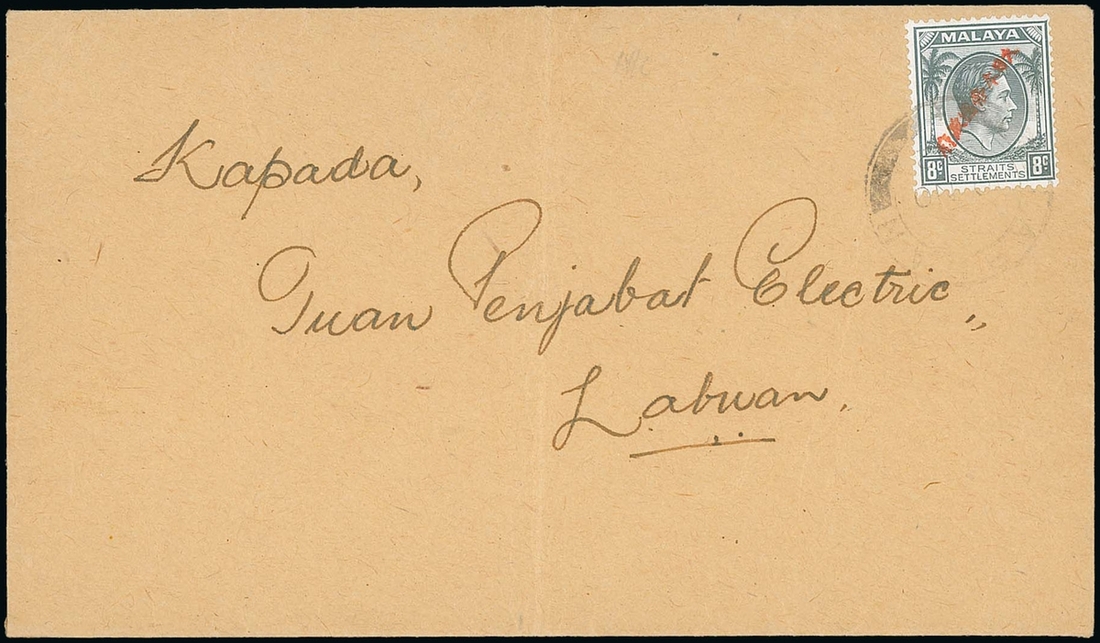 MALAYA
8c STRAITS SETTLEMENTS 8c
Kapada,
Tuan Penjabat Electric,,
Labuan.